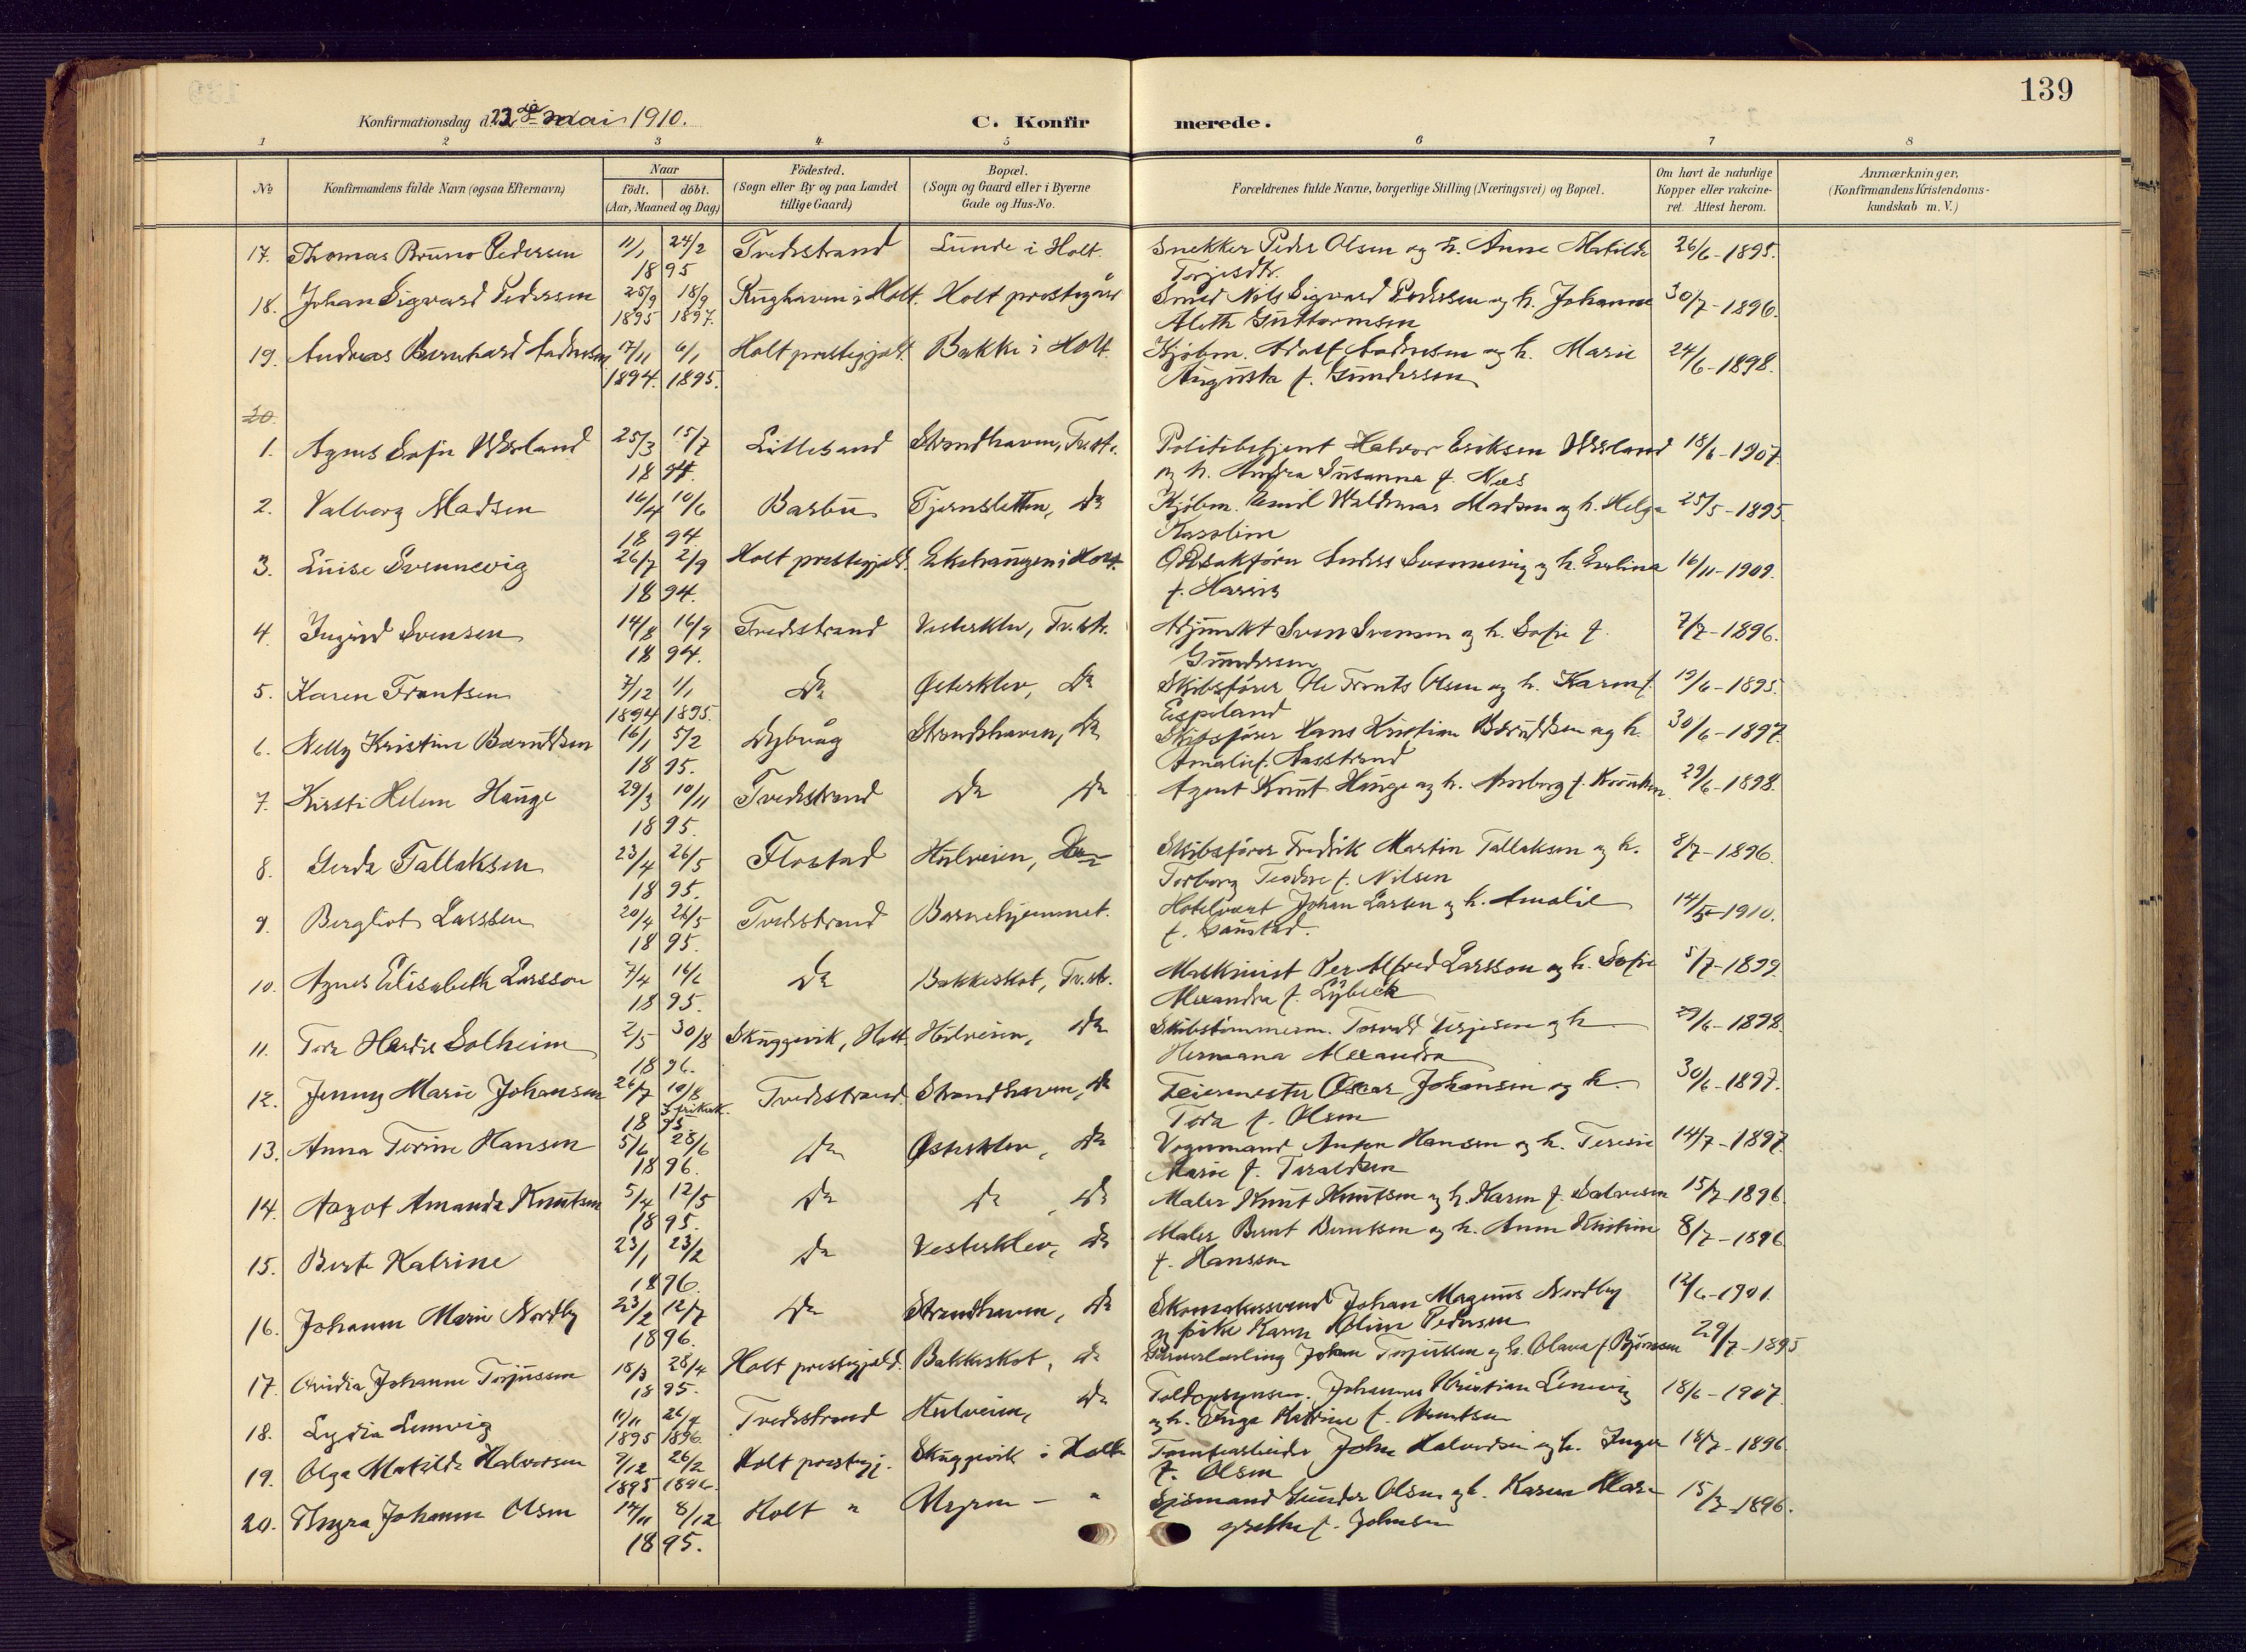 139
Konfirmationsdag d. 22de mai 1910.
C. Konfirmerede.
1 2 3 4 5 6 7 8
No
Konfirmandens fulde Navn (ogsaa Efternavn)
Naar
födt. döbt.
(Aar, Maaned og Dag)
Födested.
(Sogn eller By og paa Landet
tillige Gaard)
Bopæl.
(Sogn og Gaard eller i Byerne
Gade og Hus-No.
Forældrenes fulde Navne, borgerlige Stilling (Næringsvei) og Bopæl.
Om havt de naturlige
Kopper eller vakcine-
ret. Attest herom.
Anmærkninger.
(Konfirmandens Kristendoms-
kundskab m. V.)
17. Thomas Bruno Pedersen 11/1 24/2 Tvedestrand Lunde i Holt. Snekker Peder Olsen og h. Anne Matilde 26/6-1895.
1895 Torjesdtr.
18. Johan Sigvard Pedersen 25/9 18/9 Kughaven i Holt. Holt prestegård Smed Nils Sigvard Pedersen og h. Johanne 30/7-1896.
1895 1897. Aleth Guttormsen
19. Andreas Bernhard Andresen 17/11 6/1 Holt prestegjeld. Bakke i Holt. Kjøbm. Adolf Andresen og h. Marie 24/6-1898.
1894. 1895. Augusta f. Gundersen
20.
1. Agnes Sofie Værland 25/3 15/7 Lillesand Strandhaven, Tv.str. Politibetjent Halvor Eriksen Værland 18/6-1907.
1894. og h. Susanna f. Næs
2. Valborg Madsen 16/4 10/6 Barbu Tjernsletten, do Kjøbm. Emil Waldemar Madsen og h. Helga 25/5-1895.
1894. Karoline
3. Luise Svennevig 26/7 2/9 Holt prestegjeld. i Holt. O.R.Sakfører Anders Svennevig og h. 16/11-1909.
1894. f. Harris
4. Ingrid Svensen 14/8 16/9 Tvedestrand Vesterklev, Tv.str. Adjunkt Sven Svensen og h. Sofie f. 7/7-1896.
1894. Gundersen
5. Karen Frantsen 7/12 1/1 do Østerklev, do Skibsfører Ole Frants Olsen og h. Karen f. 19/6-1895.
1894 1895. Espeland
6. Nelly Kristine Berntsen 16/1 5/2 Dybvåg Strandhaven, do Skibsfører Hans Kristian og h. 30/6-1897.
1895. Amalie f. Aasstrand
7. Kirsti Helene Hauge 29/3 10/11 Tvedestrand do do Agent Knut Hauge og h. f. 29/6-1898.
1895.
8. Gerda Tallaksen 23/4 26/5 Flostad Hulveien, do Skibsfører Fredrik Martin Tallaksen og h. 8/7-1896.
1895. Torborg Teodore f. Nilsen
9. Bergliot Larssen 20/4 26/5 Tvedestrand Barnehjemmet. Hotelvært Johan Larsen og h. Amalie 14/5-1910.
1895. f. Saustad.
10. Agnes Elisabeth Larsson 7/4 16/6 do Bakkeskot, Tv.str. Maskinist Per Alfred Larsson og h. Sofie 5/7-1899.
1895. Alexandra f. Lybeck
11. Tora Herdis Solheim 2/5 30/8 Skuggevik, Holt. Hulveien, do Skibstømmerm. Torvald Terjesen og h. 29/6-1898.
1896. Hermana Alexandra
12. Jenny Marie Johansen 26/7 19/8 Tvedestrand. Strandhaven, do Feiermester Oscar Johansen og h. 30/6-1897.
i frikirk.
1895. Tora f. Olsen
13. Anna Terine Hansen 5/6 28/6 do Østerklev, do Vognmand Anton Hansen og h. Teresie 14/7-1897.
1896. Marie f. Teraldsen
14. Aagot Amanda Knutsen 5/4 12/5 do do, do Maler Knut Knutsen og h. Karen f. Salvesen 15/7-1896.
1895.
15. Berte Katrine 23/1 23/2 do Vesterklev, do Maler Bernt Berntsen og h. Anne Kristine 8/7-1896.
1896. f. Hanssen
16. Johanne Marie Nordby 23/2 12/7 do Strandhaven, do Skomakersvend Johan Magnus Nordby 12/6-1901.
1896. og pike Karen Oline Pedersen
17. Ovidia Johanne Torjussen 18/3 28/4 Holt prestegjeld. Bakkeskot, do Johan Torjussen og h. Olava f. Bjørnsen 29/7-1895
1895.
18. Lydia Lenvig 11/11 26/4 Tvedestrand Hulveien, do Toldopsynsm. Johannes Kristian Lenvig 18/6-1907.
1895 1896. og h. Inga Katrine f. Berntsen
19. Olga Matilde Halvorsen 9/12 26/2 Holt prestegj. Skuggevik i Holt Tomtearbeider John Halvorsen og h. Inger 18/7-1896.
1895 1896. f. Olsen
20. Thyra Johanne Olsen 14/11 8/12 Holt " — " Sjömand Gunder Olsen og h. Karen Mar- 15/7-1896.
1895. grethe f. Johnsen